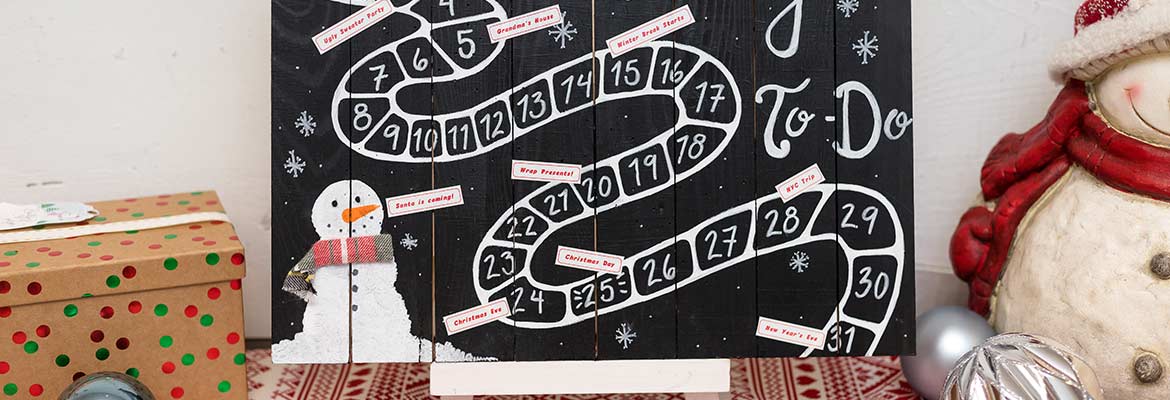 4
5
6
7
8
9
10
11
12
13
14
15
16
17
18
19
20
21
22
23
24
25
26
27
28
29
30
31
Ugly Sweater Party
Grandma's House
Winter Break Starts
y
To-Do
Wrap Presents!
Santa is coming!
NYC Trip
Christmas Day
Christmas Eve
New Year's Eve